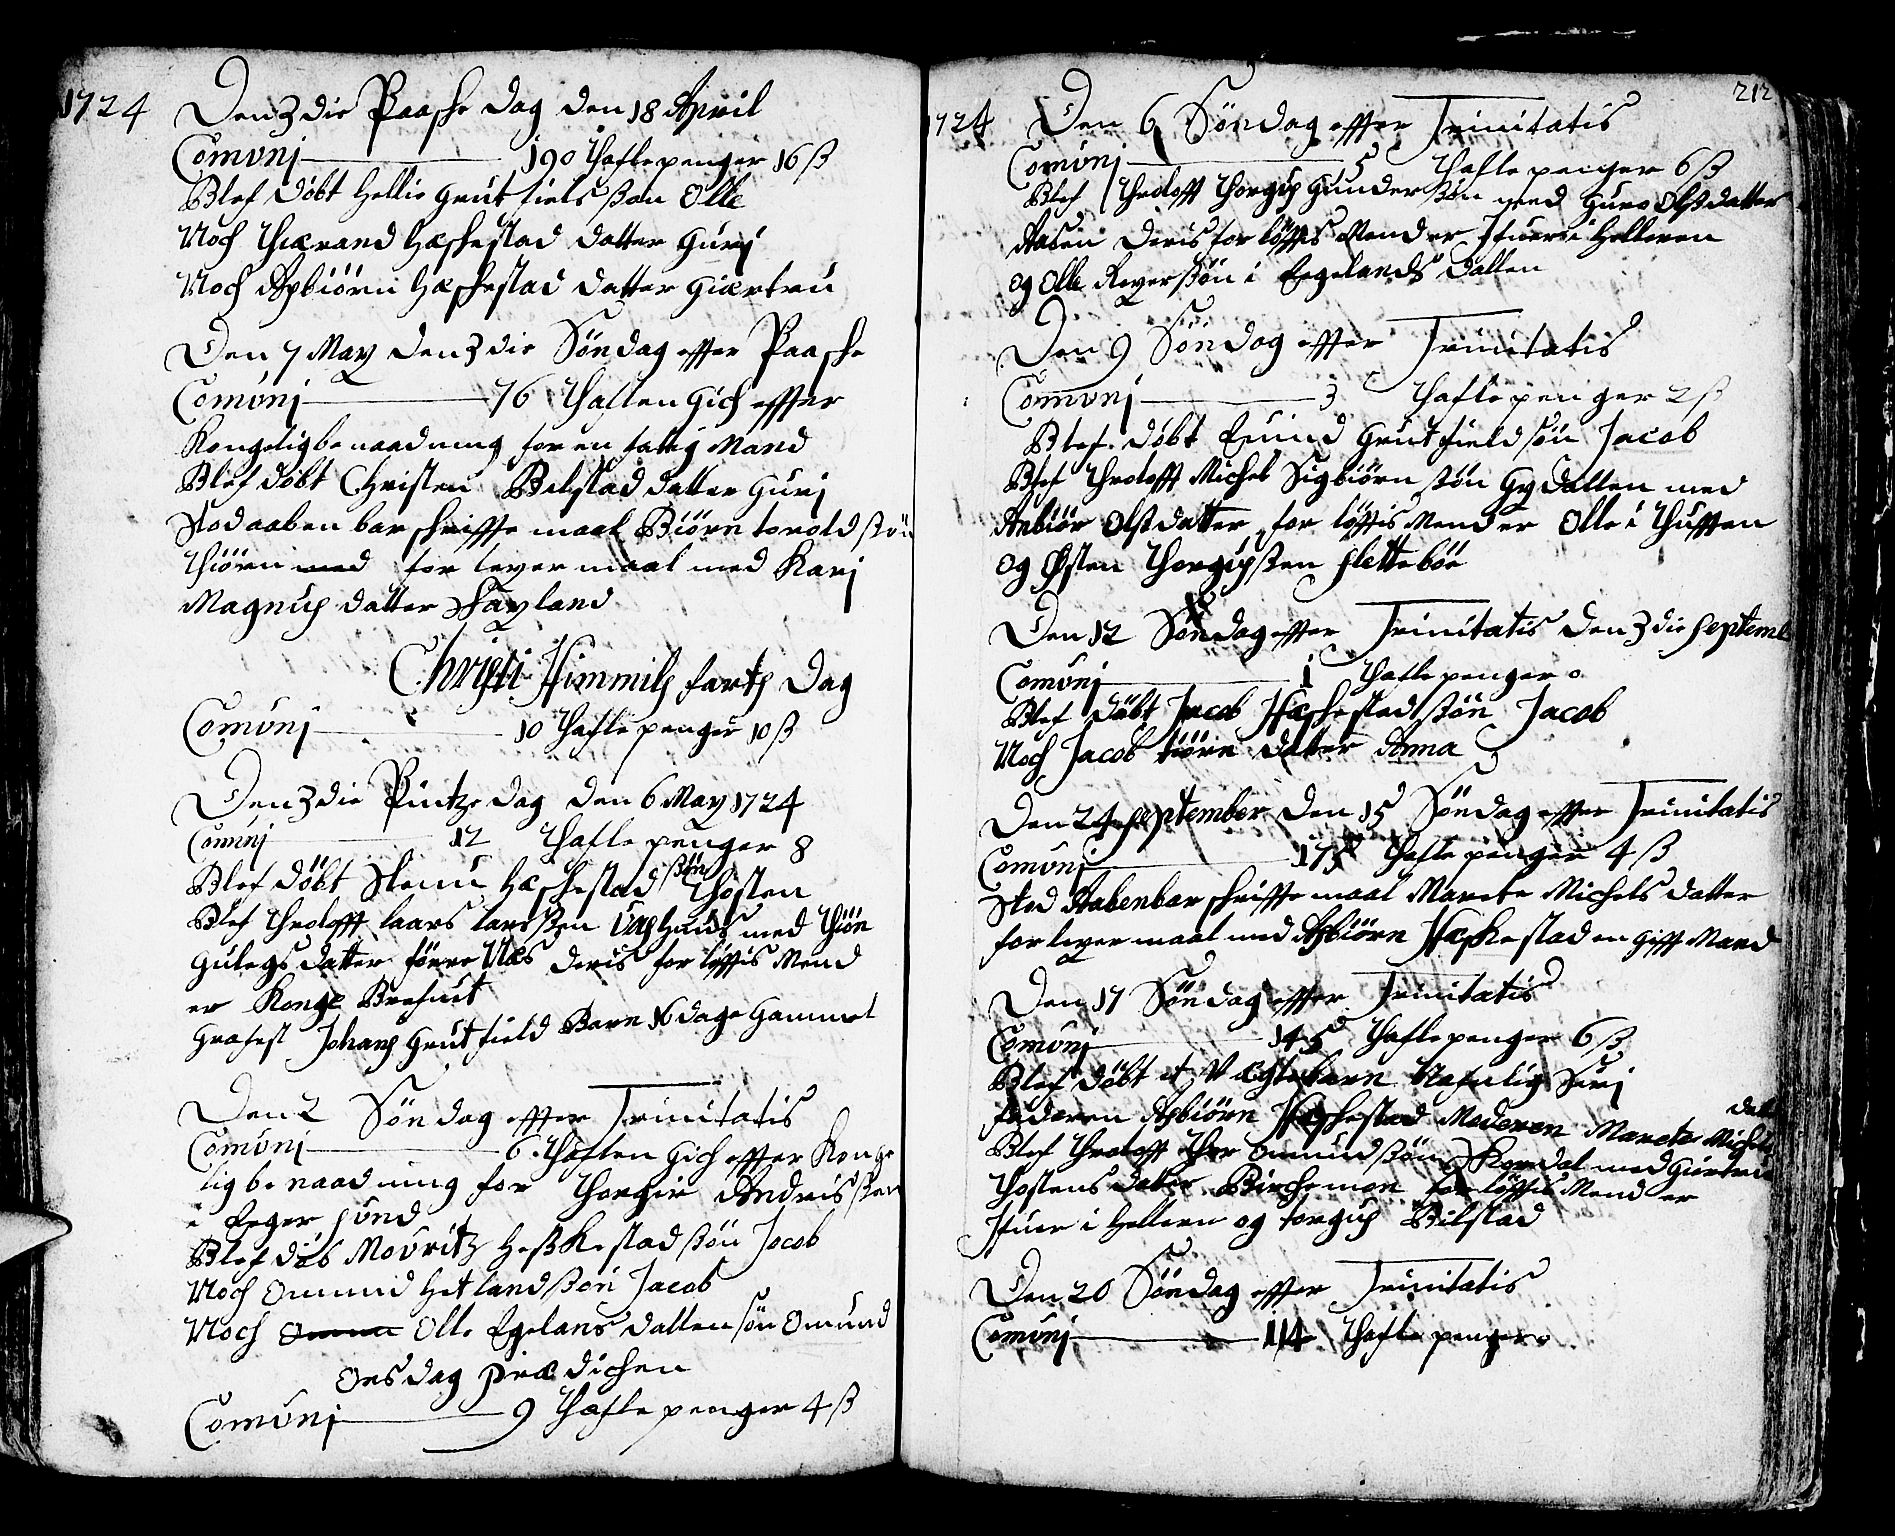 1724
Den 3die Paaske Dag den 18 April
Comunj 190 thaflepenger 16 ß
Blef döbt Hellie Grutfiels sön Olle
Noch Tharand Hæskestad datter Gurj
Noch Asbiörn Hæskestad datter Giærtru
Den 7 May den 3die Söndag effter Paaske
Comunj 76 thaflen gich effter
Kongeligbenaadning for en fattig Mand
Blef döbt Christen Bilstad datter Gurj
Stod aabenbar skriffte maal Biörn torold sön
thiörn med for leyermaal med Karj
Magnus datter Hayland
Christi Himmils farts Dag
Comunj 10 thaflepenger 10 ß
Den 3die Pintze dag den 6 May 1724
Comunj 12 thaflepenger 8
Blef döbt Stenu Hæskestad sön thosten
Blef throlofft laars larssen med
Gulegs datter Næs deris forlöfftis Mend
er Konge Brefuit
Grafest Johans Grutfield Barn 16 dage Gammel
Den 2 Söndag effter Trinitatis
Comunj 6. thaflen gich effter Konge
ligbenaadning for thorgir Andrissen
i Eeger sund
Blef döb Mouritz Heskestad sön Jacob
Noch Omund Hetland sön Jacob
Noch Olle Egelans dallen sön Omund
Onsdag prædichen
Comunj 9 thaflepenger 4 ß
212
1724
Den 6 Söndag effter Trinitatis
Comunj 5 thaflepenger 6 ß
Blef throlofft thorgiis Gunder sön med Guro Olss datter
Aasen deris forlöfftis Mend er Ifuer i Helleren
og Olle Reyersön i Eegelands dallen
Den 9 Söndag effter Trinitatis
Comunj 3 thaflepenger 2 ß
Blef döbt Eiuind Grutfield sön Jacob
Blef throlofft Michel Sigbiörn sön Gydallen med
Anbiör Olss datter, forlöfftis Mend er Olle i thufften
og Östen thorgiissen sletteböe
Den 12 Söndag effter Trinitatis den 3die septemb
Comunj 1 thaflepenger 0
Blef döbt Jacob Hæskestad sön Jacob
Noch Jacob tiörn datter Anna
Den 24 september den 15 Söndag effter Trinitatis
Comunj 175 thaflepenger 4 ß
Stod Aabenbar skriffte maal Marete Michels datter
for leyermaal med Asbiörn Hæskestad en gifft Mand
Den 17 Söndag effter Trinitatis
Comunj 145 thaflepenger 6 ß
Blef döbt et Vægtebarn Nafnlig Sirj
faderen Asbiörn Hæskestad Moderen Marete Michels datt
Blef throlofft thor Omund sön Skordal med Giertru
thostens datter Birchemon forlöfftis Mend er
Ifuer i Hellern og torgiis Bilstad
Den 20 Söndag effter Trinitatis
Comunj 114 thaflepenger 0